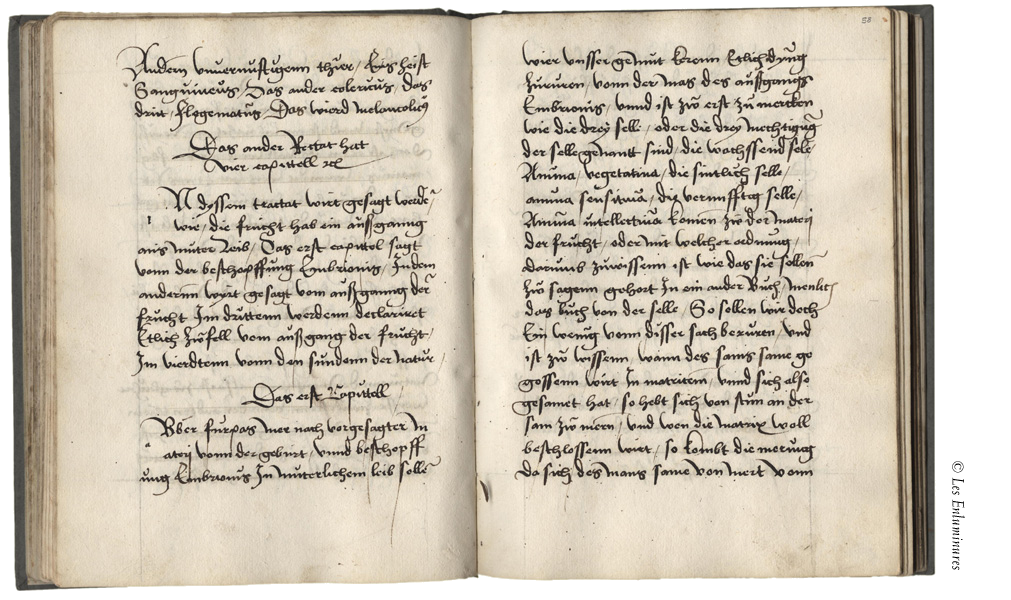 Andern vnuernufftigenn thier / Eins heist
Sanguineus / Das ander colericus / das
dritt / flegematus / Das vierd melancolicus
Das ander Tractat hat
vier capittell
N dyssem tractat wirt gesagt werde
wie / die frucht hab ein aussganng
aus muter Leib / Das erst capittel sagt
vonn der beschopffung Embrionis / In dem
anderenn wyrt gesagt vom aussganng der
frucht Im drittenn werdenn declariret
Etlich Zufell vom aussgang der frucht /
Im vierdtenn vonn den sundenn der natur
Das erst Capittell
Vber furpas mer nach vorgesagter m
aterj vonn der geburt / vnnd beschopff
ung Embrionis In muterlichem leib sollen
58
wier vnsser gemut keren Etlich dyng
zu ruren / vonn der mas des aussgangs
Embrionis / vnnd ist zw erst zu mercken
wie die drey sell / oder die drey mechtigung
der selle genant sind / die wachssend sele
Anima / vegetatiua / die sintlich selle /
anima sensitiua / die vernufftig selle /
Anima intellectiua komen zw der materj
der frucht / oder mit welcher ordnung /
darumb zuwissenn ist wie das sie sollen
zw sagenn gehort In ein ander Buch /
das buch von der selle / So sollen wir doch
Ein wenig vonn disser sach beruren / vnd
ist zw wissenn / wann des same ge
gossenn wirt In matricem / vnnd sich also
gesamet hat / so hebt sich von stun an der
sam zw mern / vnd wen die matrix woll
beschlossenn wirt / so kombt die merung
da sich des mans same von mert vonn
© Les Enluminures